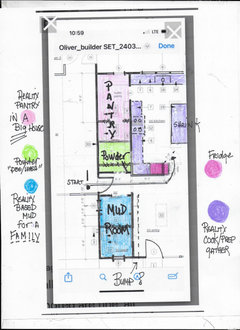 10:59
LTE
Oliver_builder SET_2403...
Done
REALTY
PANTRY
IN A
BIG HOUSE
POWDER
REALTY
BASED
MUD
FOR A
FAMILY
PANTRY
Powder
START
MUD
ROOM
BUMP
Fridge
REALTY
COOK/PREP
GATHER